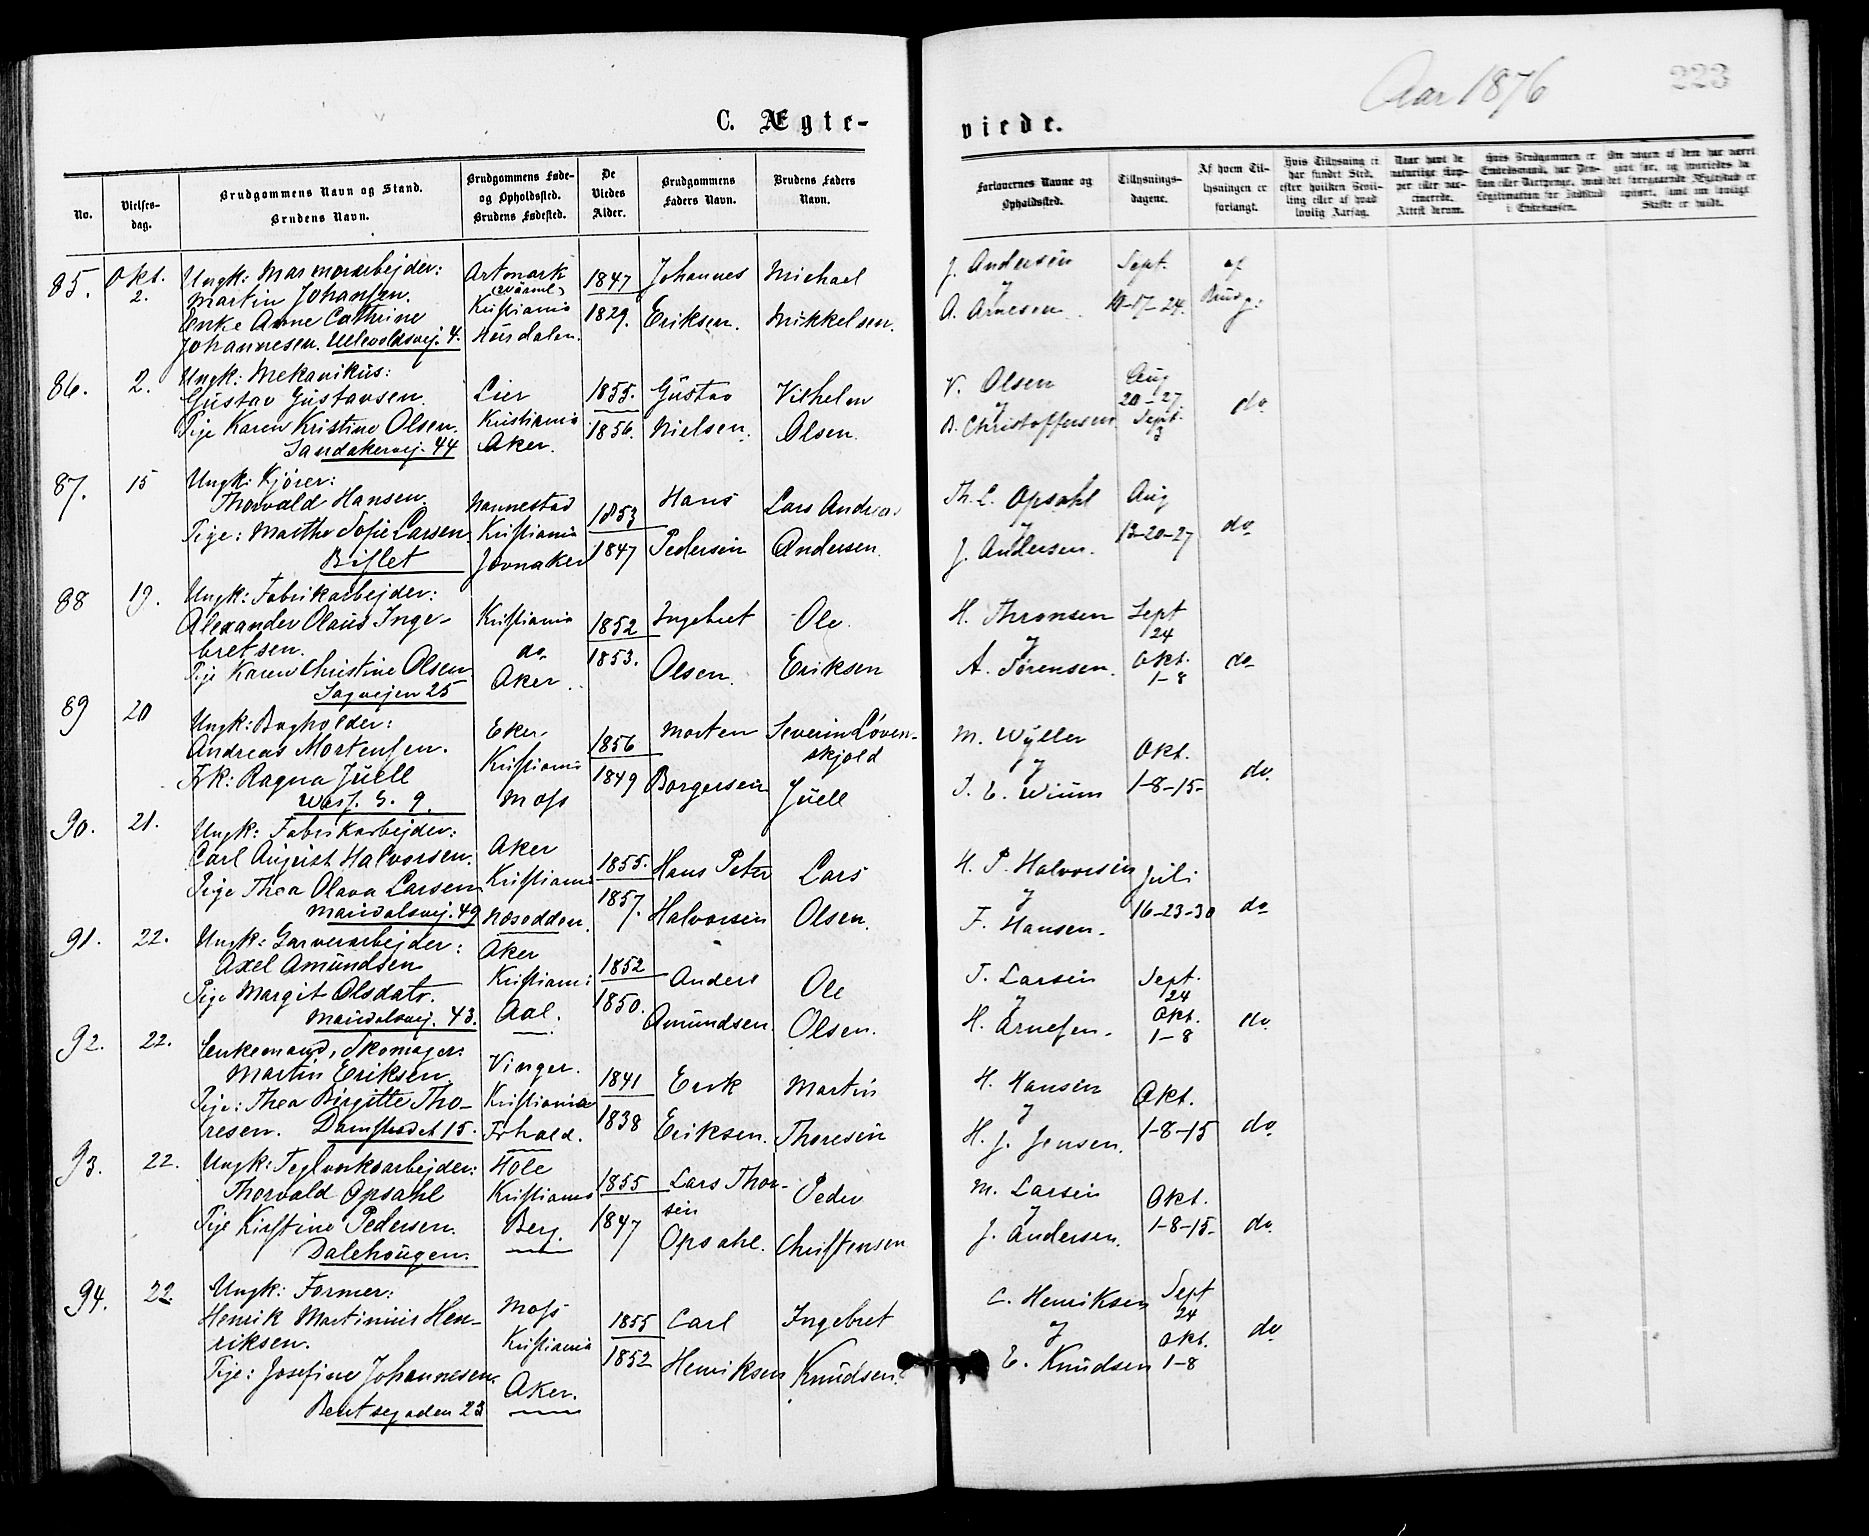 Aar 1876
223
C. Ægte-
viede.
No.
Vielses-
dag.
Brudgommens Navn og Stand.
Brudens Navn.
Brudgommens Føde-
og Opholdssted.
Brudens Fødested.
De
Viedes
Alder.
Brudgommens
Faders Navn.
Brudens Faders
Navn.
Forlovernes Navne og
Opholdssted.
Tillysnings-
dagene.
Af hvem Til-
lysningen er
forlangt.
Hvis Tillysning ei
har fundet Sted,
efter hvilken Bevil-
ling eller af hvad
lovlig Aarsag.
Naar havt de
naturlige Kop-
per eller vac-
cinerede.
Attest derom.
85.
Okt.
2.
Ungk: Marmorarbejder:
Martin Johansen.
Enke Anne Cathrine
Johannesen. Ullevoldsvej. 4.
Artmark
(Värml)
Kristiania
Hurdalen.
1847
1829.
Johannes
Eriksen.
Michael
Mikkelsen.
J. Andersen
&
A. Arnesen.
Sept.
10-17-24.
af
Brudg:
86.
2.
Ungk: Mekanikus:
Gustav Gustavsen.
Pige Karen Kristine Olsen.
Sandakervej. 44
Lier
Kristiania
Aker.
1855.
1856.
Gustav
Nielsen.
Vilhelm
Olsen.
V. Olsen
&
B. Christoffersen
Aug
20-27
Sept.
3
do
87.
15
Ungk: Kjører:
Thorvald Hansen.
Pige: Marthe Sofie Larsen
Bislet
Nannestad
Kristiania
Jevnaker
1853
1847
Hans
Pedersen
Lars Andreas
Andersen.
Th. L. Opsahl
&
J. Andersen.
Aug
13-20-27
do
88
19.
Ungk: Fabrikarbejder:
Alexander Olaus Inge-
bretsen.
Pige Karen Christine Olsen
Sagvejen 25
Kristiania
do
Aker.
1852
1853.
Ingebret
Olsen.
Ole.
Eriksen
H. Thronsen
&
A. Sørensen.
Sept
24
Okt.
1-8
do
89
20
Ungk: Bogholder:
Andreas Mortensen.
Frk: Ragna Juell
Wesf. G. 9.
Eker
Kristiania
Moss
1856
1849
Morten
Borgersen
Severin Løven-
skjold
Juell
M. Wyller
&
T. E. Wium
Okt.
1-8-15-
do.
90.
21.
Ungk: Fabrikarbejder:
Carl August Halvorsen.
Pige Thea Olava Larsen
Maridalsvej. 49
Aker
Kristiania
Næsodden.
1855.
1857.
Hans Peter
Halvorsen
Lars
Olsen.
H. P. Halvorsen
&
F. Hansen.
Juli
16-23-30
do
91.
22.
Ungk: Garverarbejder:
Axel Amundsen
Pige Margit Olsdatr.
Maridalsvej. 43.
Aker
Kristiania
Aal.
1852
1850.
Anders
Amundsen.
Ole
Olsen.
T. Larsen
&
H. Arnesen.
Sept.
24
Okt.
1-8
do.
92.
22.
Enkemand, Skomager:
Martin Eriksen.
Pige: Thea Birgitte Tho-
resen. Damstredet 15.
Vinger.
Kristiania
Frhald.
1841
1838
Erik
Eriksen.
Martin
Thoresen
H. Hansen
&
H. J. Jensen.
Okt.
1-8-15
do.
93.
22.
Ungk: Teglverksarbejder:
Thorvald Opsahl
Pige Kirstine Pedersen.
Dalehaugen.
Hole
Kristiania
Berg.
1855
1847
Lars Thor-
sen
Opsahl.
Peder
Christensen
M. Larsen
&
J. Andersen.
Okt.
1-8-15-
do.
94.
22.
Ungk: Former:
Henrik Martinius Hen-
riksen.
Pige: Josefine Johannesen.
Bentsegaden 23
Moss
Kristiania
Aker.
1855
1852
Carl
Henriksen
Ingebret
Knudsen.
C. Henriksen
&
E. Knudsen
Sept
24
Okt.
1-8
do